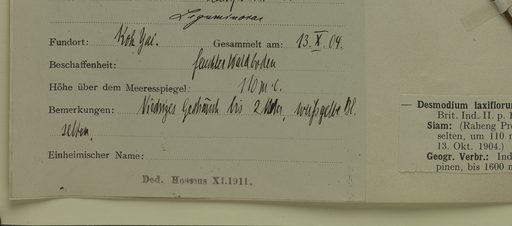 Leguminosae
Fundort: Koh Yai. Gesammelt am: 13. X. 04.
Beschaffenheit: feuchter Waldboden
Höhe über dem Meeresspiegel: 110 m
Bemerkungen: Niedriges Gesträuch bis 2 weißgelbe Bl.
selten.
Einheimischer Name:
Ded. Hosseus XI.1911.
— Desmodium laxiflorum
Brit. Ind. II. p.
Siam: (Raheng Pro
selten, um 110 m
13. Okt. 1904.)
Geogr. Verbr.: Ind
pinen, bis 1600 m